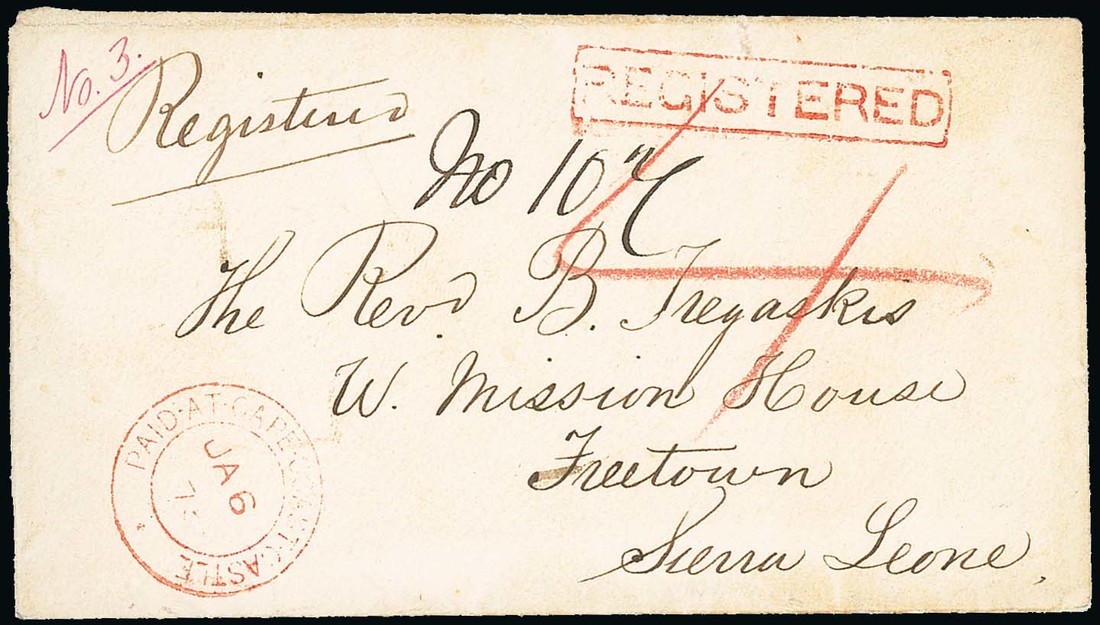 No. 3.
Registered
REGISTERED
No 10
The Revd. B. Tregaskis
W. Mission House
Freetown
Sierra Leone.
PAID·AT·CAPE·COAST·CASTLE
JA 6